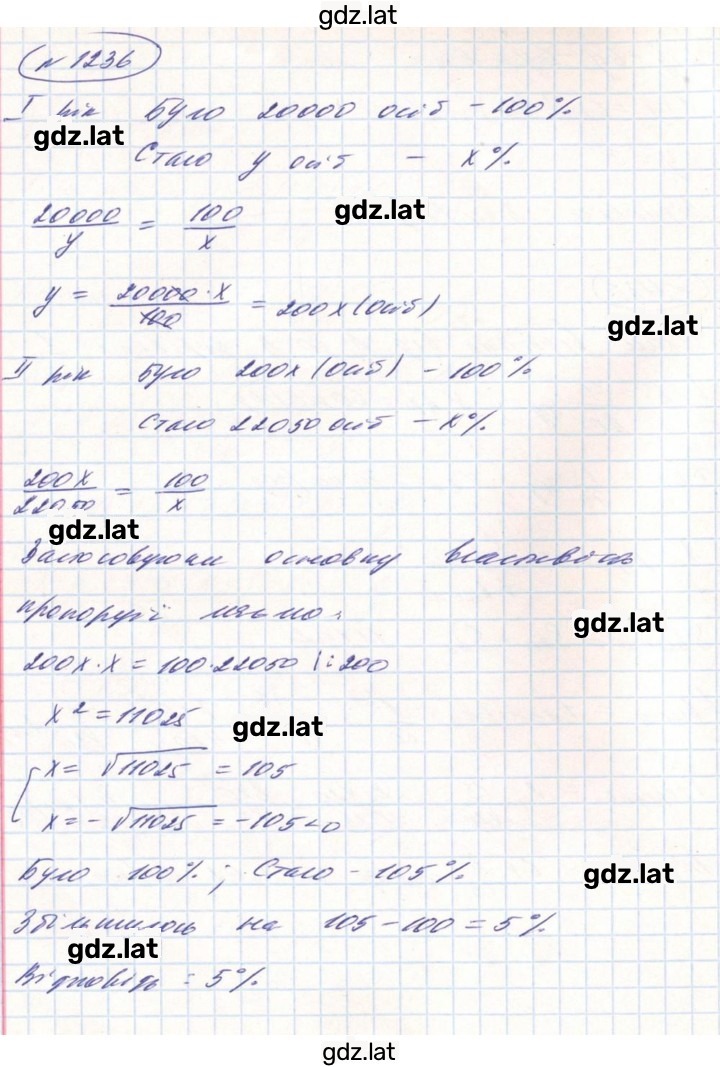 gdz.lat
№ 1236
I рік Було 20000 осіб - 100%
gdz.lat
Стало y осіб - x%
gdz.lat
20000/y = 100/x
y = 20000·x/100 = 200x (осіб)
gdz.lat
II рік Було 200x (осіб) - 100%
Стало 22050 осіб - x%
200x/22050 = 100/x
gdz.lat
Застосовуючи основну властивість
пропорції маємо:
gdz.lat
200x·x = 100·22050 |:200
x² = 11025
gdz.lat
x = √11025 = 105
x = -√11025 = -105 < 0
Було 100%; Стало - 105%
gdz.lat
Збільшилось на 105 - 100 = 5%
gdz.lat
Відповідь: 5%
gdz.lat